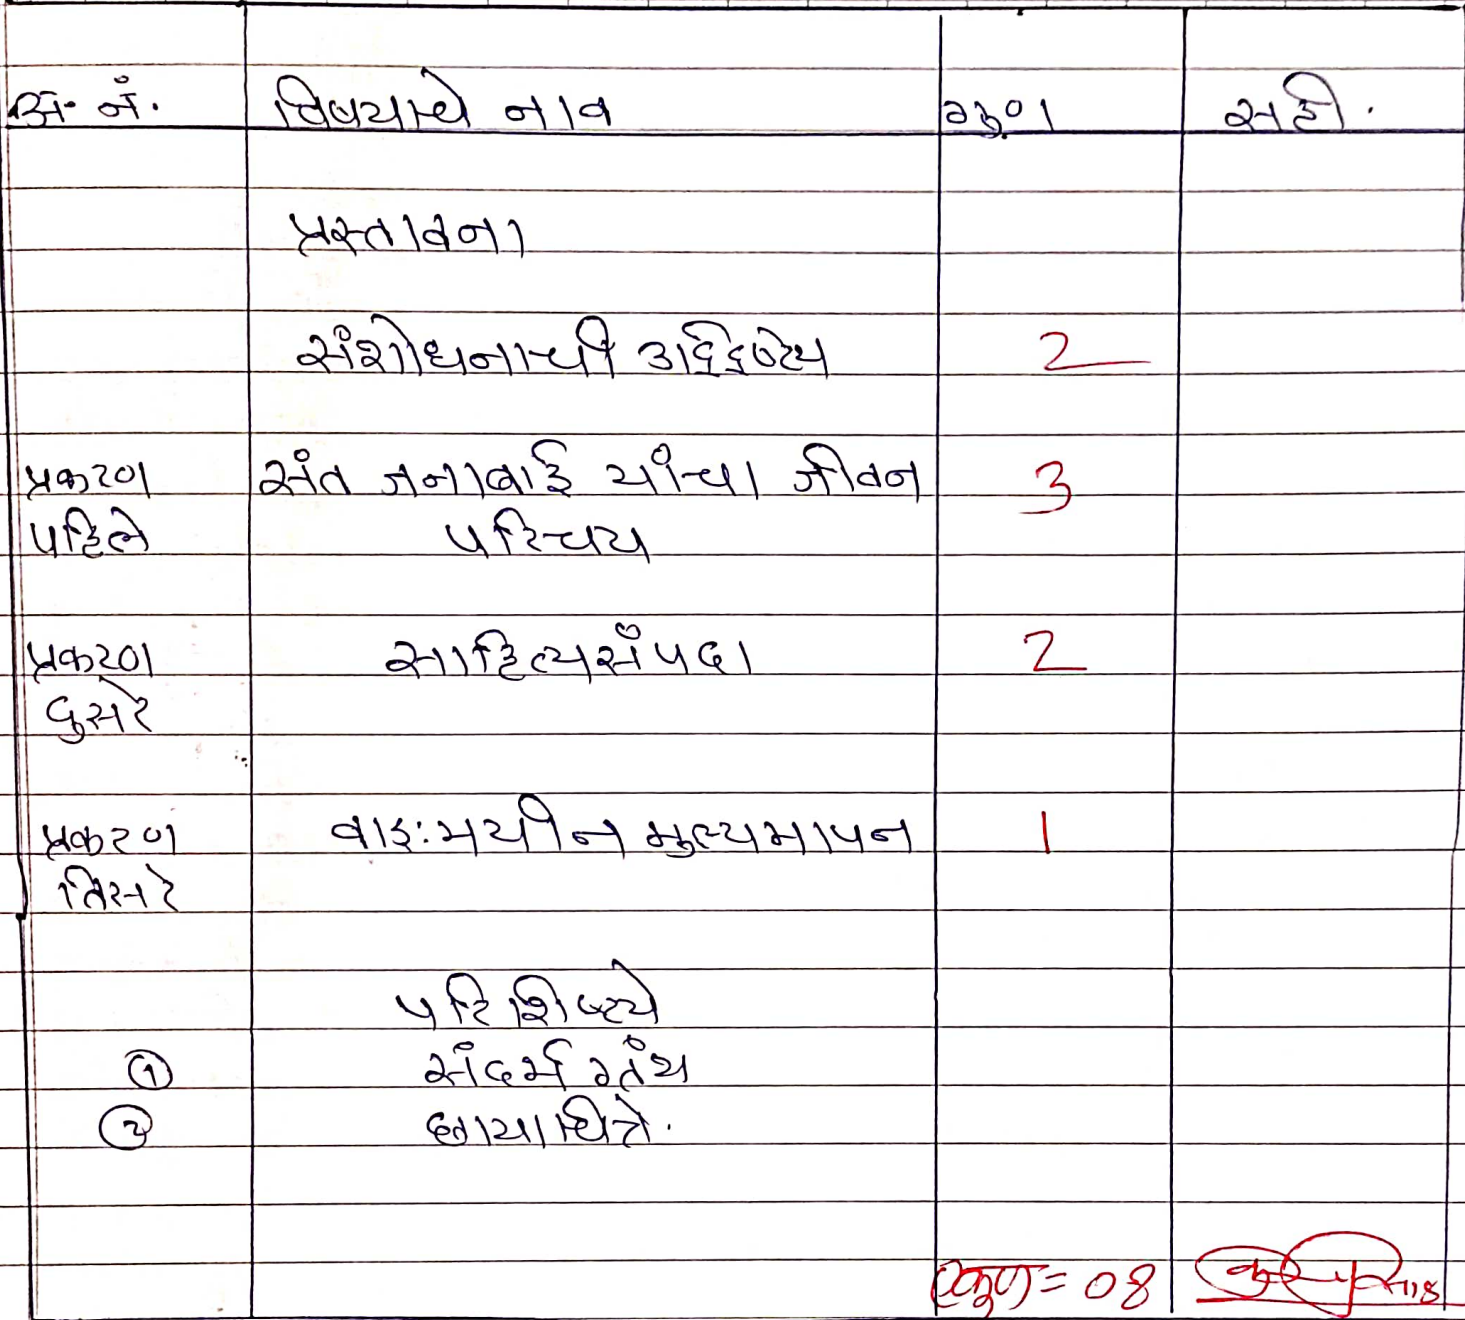 अ. नं. विषयाचे नाव गुण सही.
प्रस्तावना
संशोधनाची उद्दिष्टेय 2
प्रकरण संत जनाबाई यांचा जीवन 3
पहिले परिचय
प्रकरण साहित्यसंपदा 2
दुसरे
प्रकरण वाङ:मयीन मुल्यमापन 1
तिसरे
परिशिष्टये
① संदर्भ ग्रंथ
② छायाचित्रे.
एकुण = 08